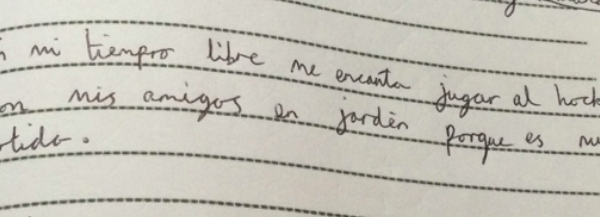 mi tiempro libre me encanta jugar al hock
on mis amigos en jardén porque es mu
rtido.